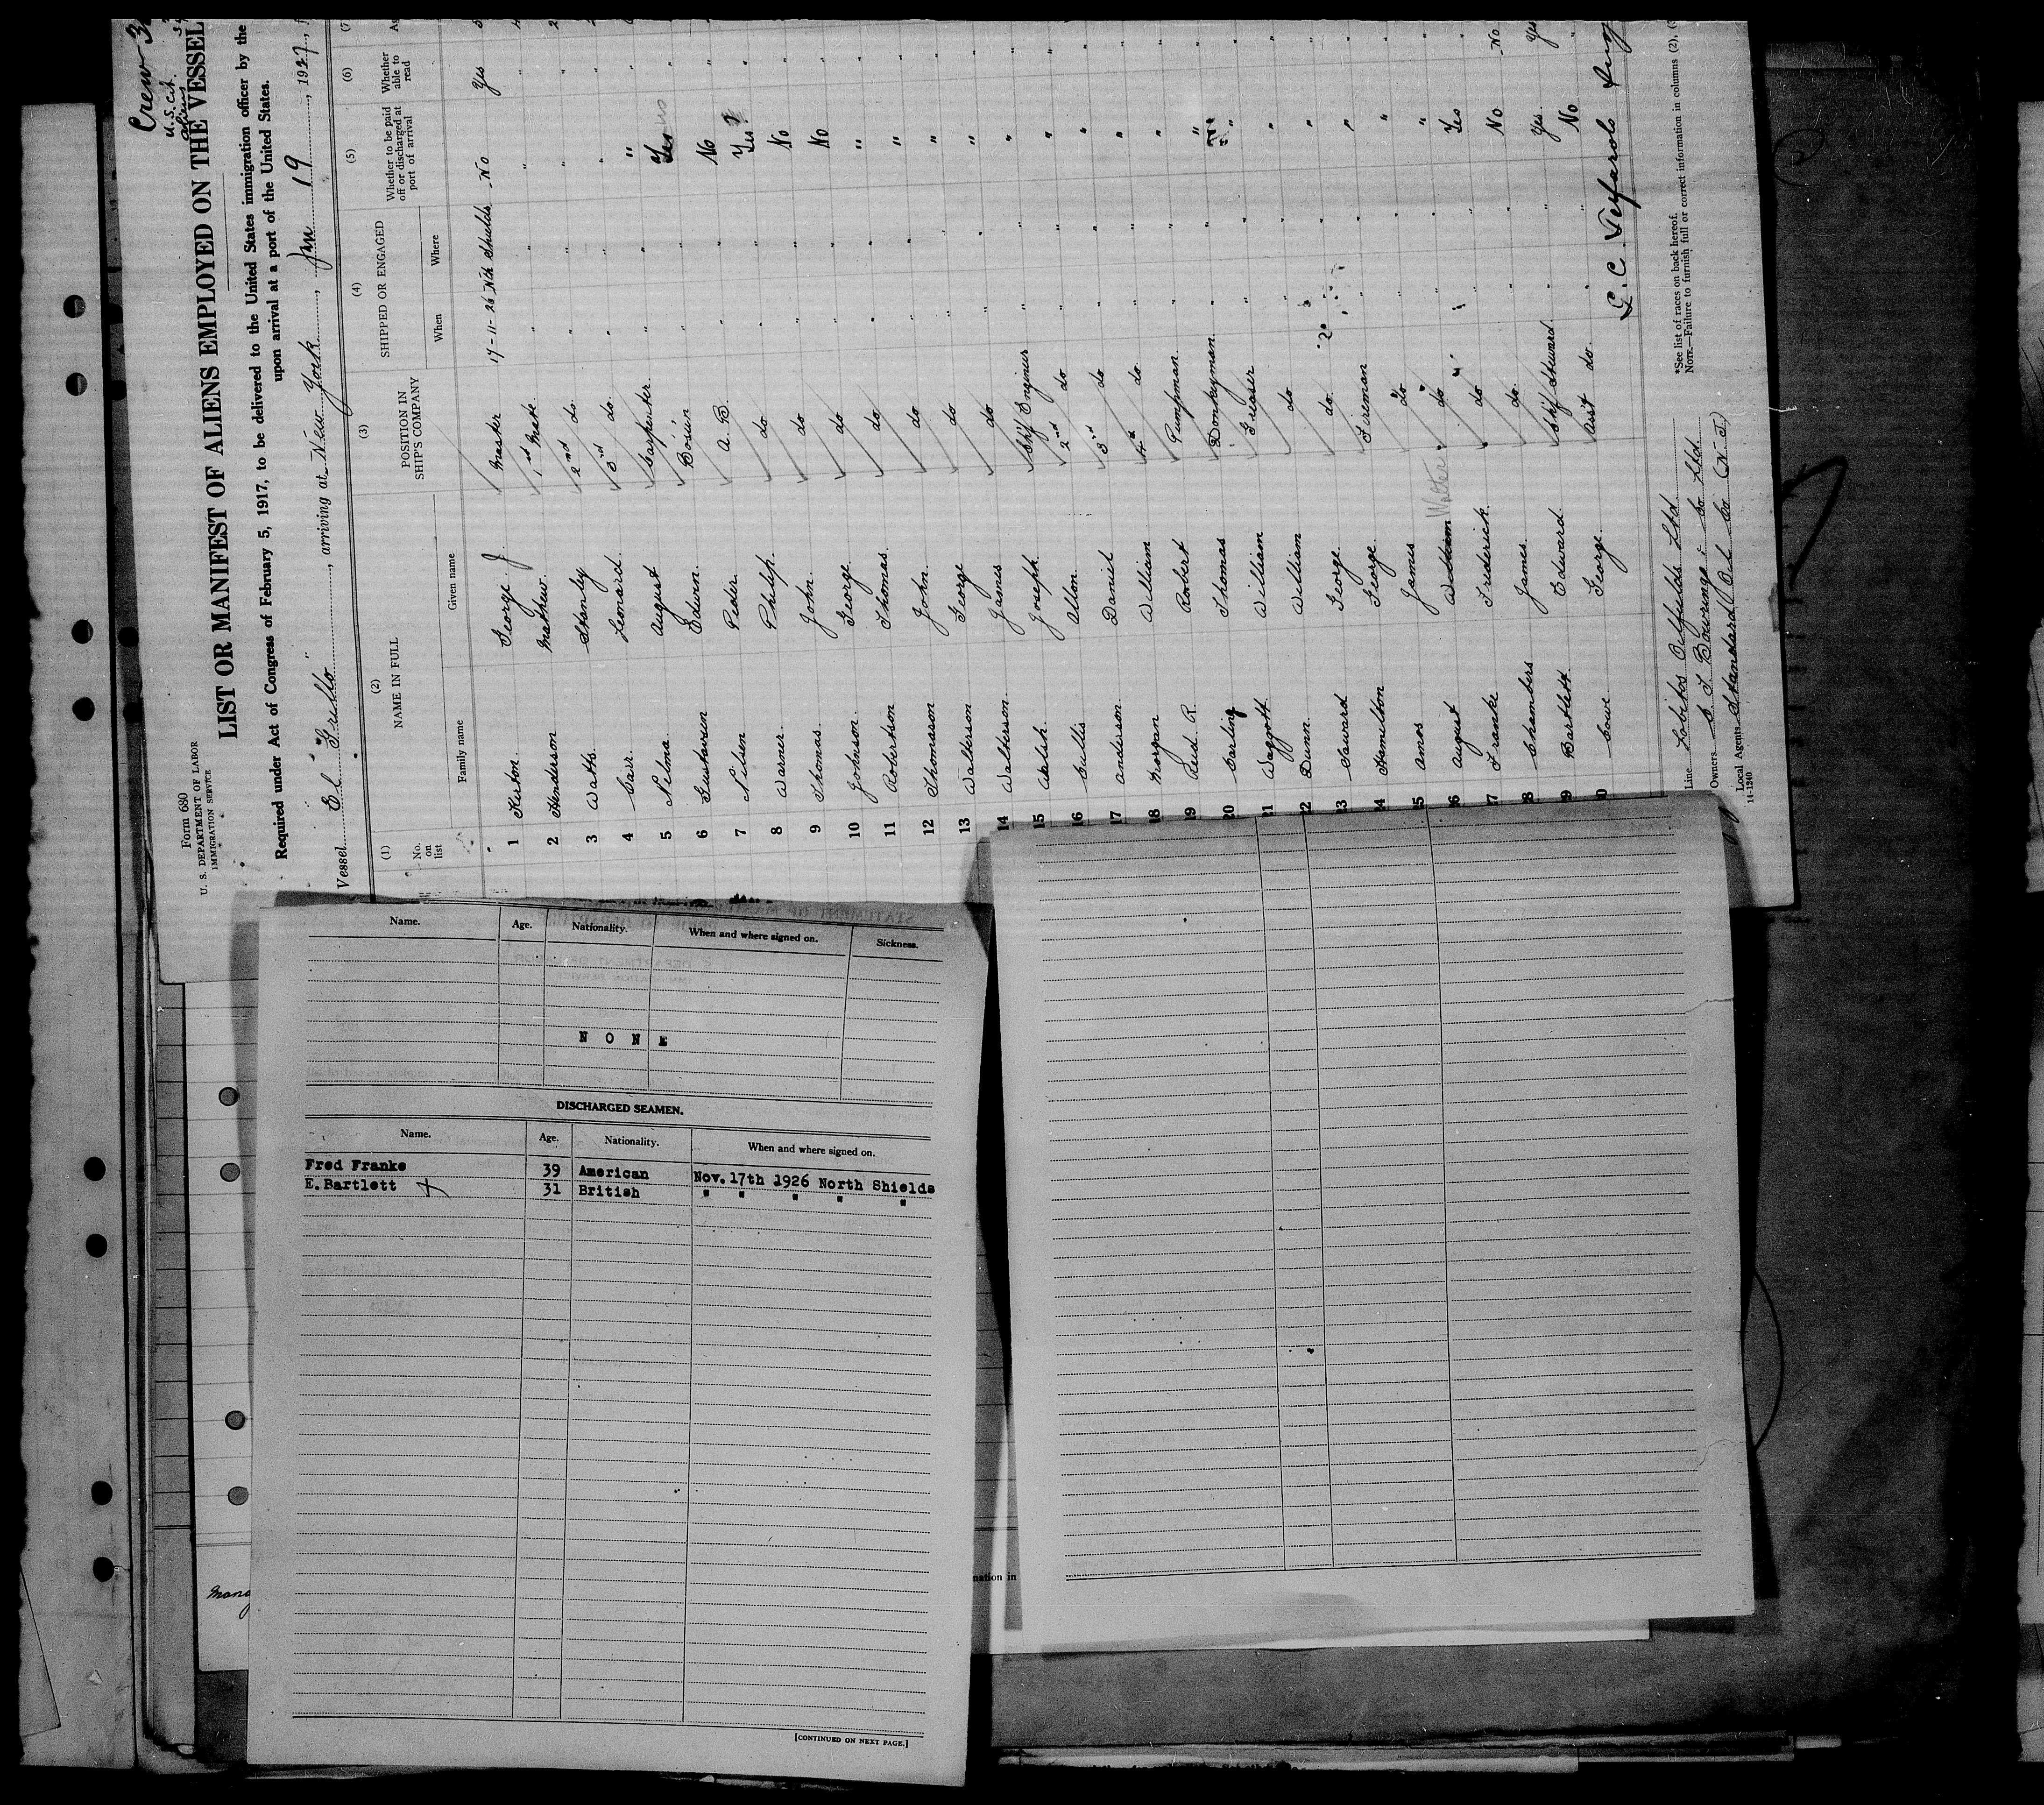 Crew 3
U.S. Cit.
aliens
Form 680
U. S. DEPARTMENT OF LABOR
IMMIGRATION SERVICE
LIST OR MANIFEST OF ALIENS EMPLOYED ON THE VESSEL
Required under Act of Congress of February 5, 1917, to be delivered to the United States immigration officer by the
upon arrival at a port of the United States.
Vessel "El Grillo", arriving at New York, Jan 19, 1927,
(1) (2) (3) (4) (5) (6) (7)
No. on list NAME IN FULL POSITION IN SHIP'S COMPANY SHIPPED OR ENGAGED Whether to be paid off or discharged at port of arrival Whether able to read
Family name Given name When Where
1 Kirton George J Master 17-11-26 Nth Shields No Yes
2 Henderson Mathew 1st Mate " " " "
3 Watts Stanley 2nd do " " " "
4 Carr Leonard 3rd do " " " "
5 Nilma August Carpenter " " " "
6 Gustavsen Edwin Bosun " " Yes No "
7 Nilsen Peder A. B. " " No "
8 Warner Philip do " " Yes "
9 Thomas John do " " No "
10 Johnson George do " " No "
11 Robertson Thomas do " " " "
12 Thomason John do " " " "
13 Walterson George do " " " "
14 Walterson James do " " " "
15 Walsh Joseph Chf Engineer " " " "
16 Cullis Allon 2nd do " " " "
17 Anderson Daniel 3rd do " " " "
18 Morgan William 4th do " " " "
19 Reid R. Robert Pumpman " " " "
20 Carling Thomas Donkeyman " " " "
21 Waggott William Greaser " " " "
22 Dunn William do " " "
23 Saward George do " " "
24 Hamilton George Fireman " " " "
25 Amos James do " " " "
26 August William Walter do " " Yes "
27 Franke Frederick do " " No No
28 Chambers James do " " Yes Yes
29 Bartlett Edward Chf Steward " " No "
30 Cowe George Asst do " "
Line Lobitos Oilfields Ltd
Owners C. T. Bowring & Co Ltd
Local Agents Standard Oil Co (N.J)
14-1240
*See list of races on back hereof.
NOTE.—Failure to furnish full or correct information in columns (2), (3
Name. Age. Nationality. When and where signed on. Sickness.
NONE
DISCHARGED SEAMEN.
Name. Age. Nationality. When and where signed on.
Fred Franke 39 American Nov. 17th 1926 North Shields
E. Bartlett 31 British " " " " "
[CONTINUED ON NEXT PAGE.]
mation in